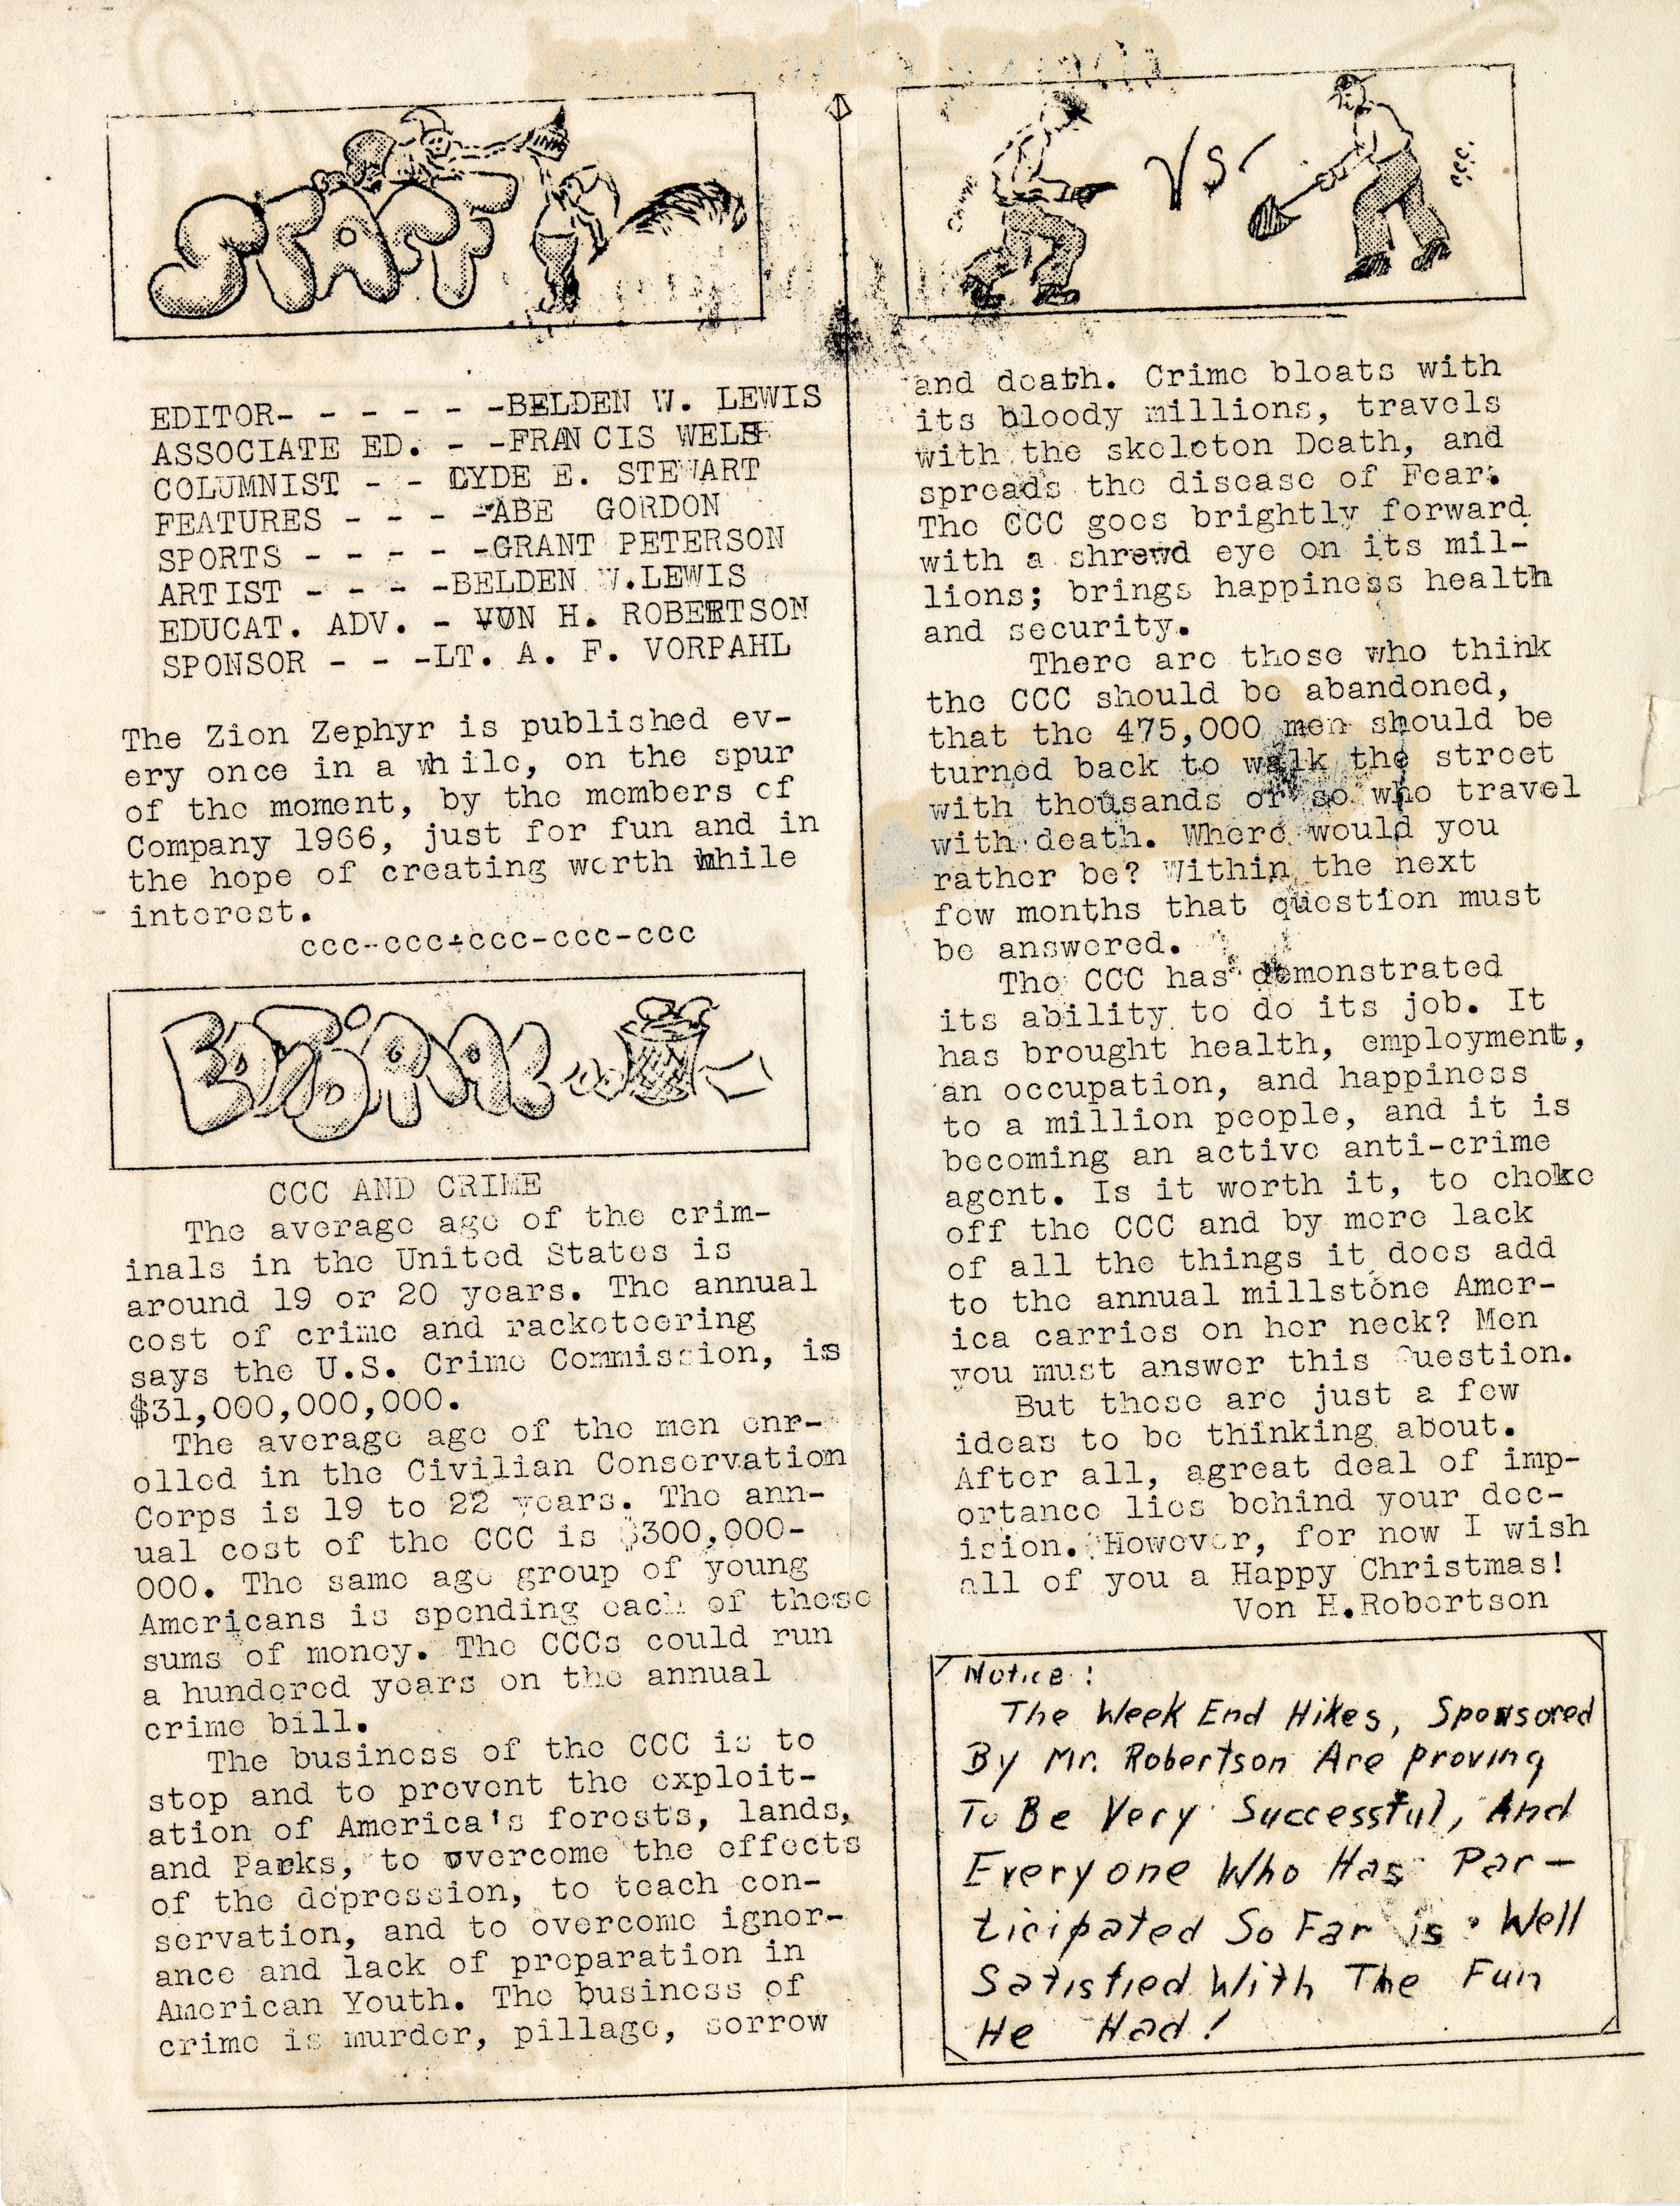 STAFF
EDITOR- - - - - - -BELDEN W. LEWIS
ASSOCIATE ED. - -FRANCIS WELH
COLUMNIST - - CYDE E. STEWART
FEATURES - - - -ABE GORDON
SPORTS - - - - -GRANT PETERSON
ARTIST - - - -BELDEN W.LEWIS
EDUCAT. ADV. - VON H. ROBERTSON
SPONSOR - - -LT. A. F. VORPAHL
The Zion Zephyr is published ev-
ery once in a while, on the spur
of the moment, by the members of
Company 1966, just for fun and in
the hope of creating worth while
interest.
ccc-ccc-ccc-ccc-ccc
EDITORIAL
CCC AND CRIME
The average age of the crim-
inals in the United States is
around 19 or 20 years. The annual
cost of crime and racketeering
says the U.S. Crime Commission, is
$31,000,000,000.
The average age of the men enr-
olled in the Civilian Conservation
Corps is 19 to 22 years. The ann-
ual cost of the CCC is $300,000-
000. The same age group of young
Americans is spending each of these
sums of money. The CCCs could run
a hundered years on the annual
crime bill.
The business of the CCC is to
stop and to prevent the exploit-
ation of America's forests, lands,
and Parks, to overcome the effects
of the depression, to teach con-
servation, and to overcome ignor-
ance and lack of preparation in
American Youth. The business of
crime is murder, pillage, sorrow
VS
and death. Crime bloats with
its bloody millions, travels
with the skeleton Death, and
spreads the disease of Fear.
The CCC goes brightly forward
with a shrewd eye on its mil-
lions; brings happiness health
and security.
There are those who think
the CCC should be abandoned,
that the 475,000 men should be
turned back to walk the street
with thousands or so who travel
with death. Where would you
rather be? Within the next
few months that question must
be answered.
The CCC has demonstrated
its ability to do its job. It
has brought health, employment,
an occupation, and happiness
to a million people, and it is
becoming an active anti-crime
agent. Is it worth it, to choke
off the CCC and by mere lack
of all the things it does add
to the annual millstone Amer-
ica carries on her neck? Men
you must answer this Question.
But these are just a few
ideas to be thinking about.
After all, agreat deal of imp-
ortance lies behind your dec-
ision. However, for now I wish
all of you a Happy Christmas!
Von H.Robertson
Notice:
The Week End Hikes, Sponsored
By Mr. Robertson Are Proving
To Be Very Successful, And
Everyone Who Has Par-
ticipated So Far is Well
Satisfied With The Fun
He Had!